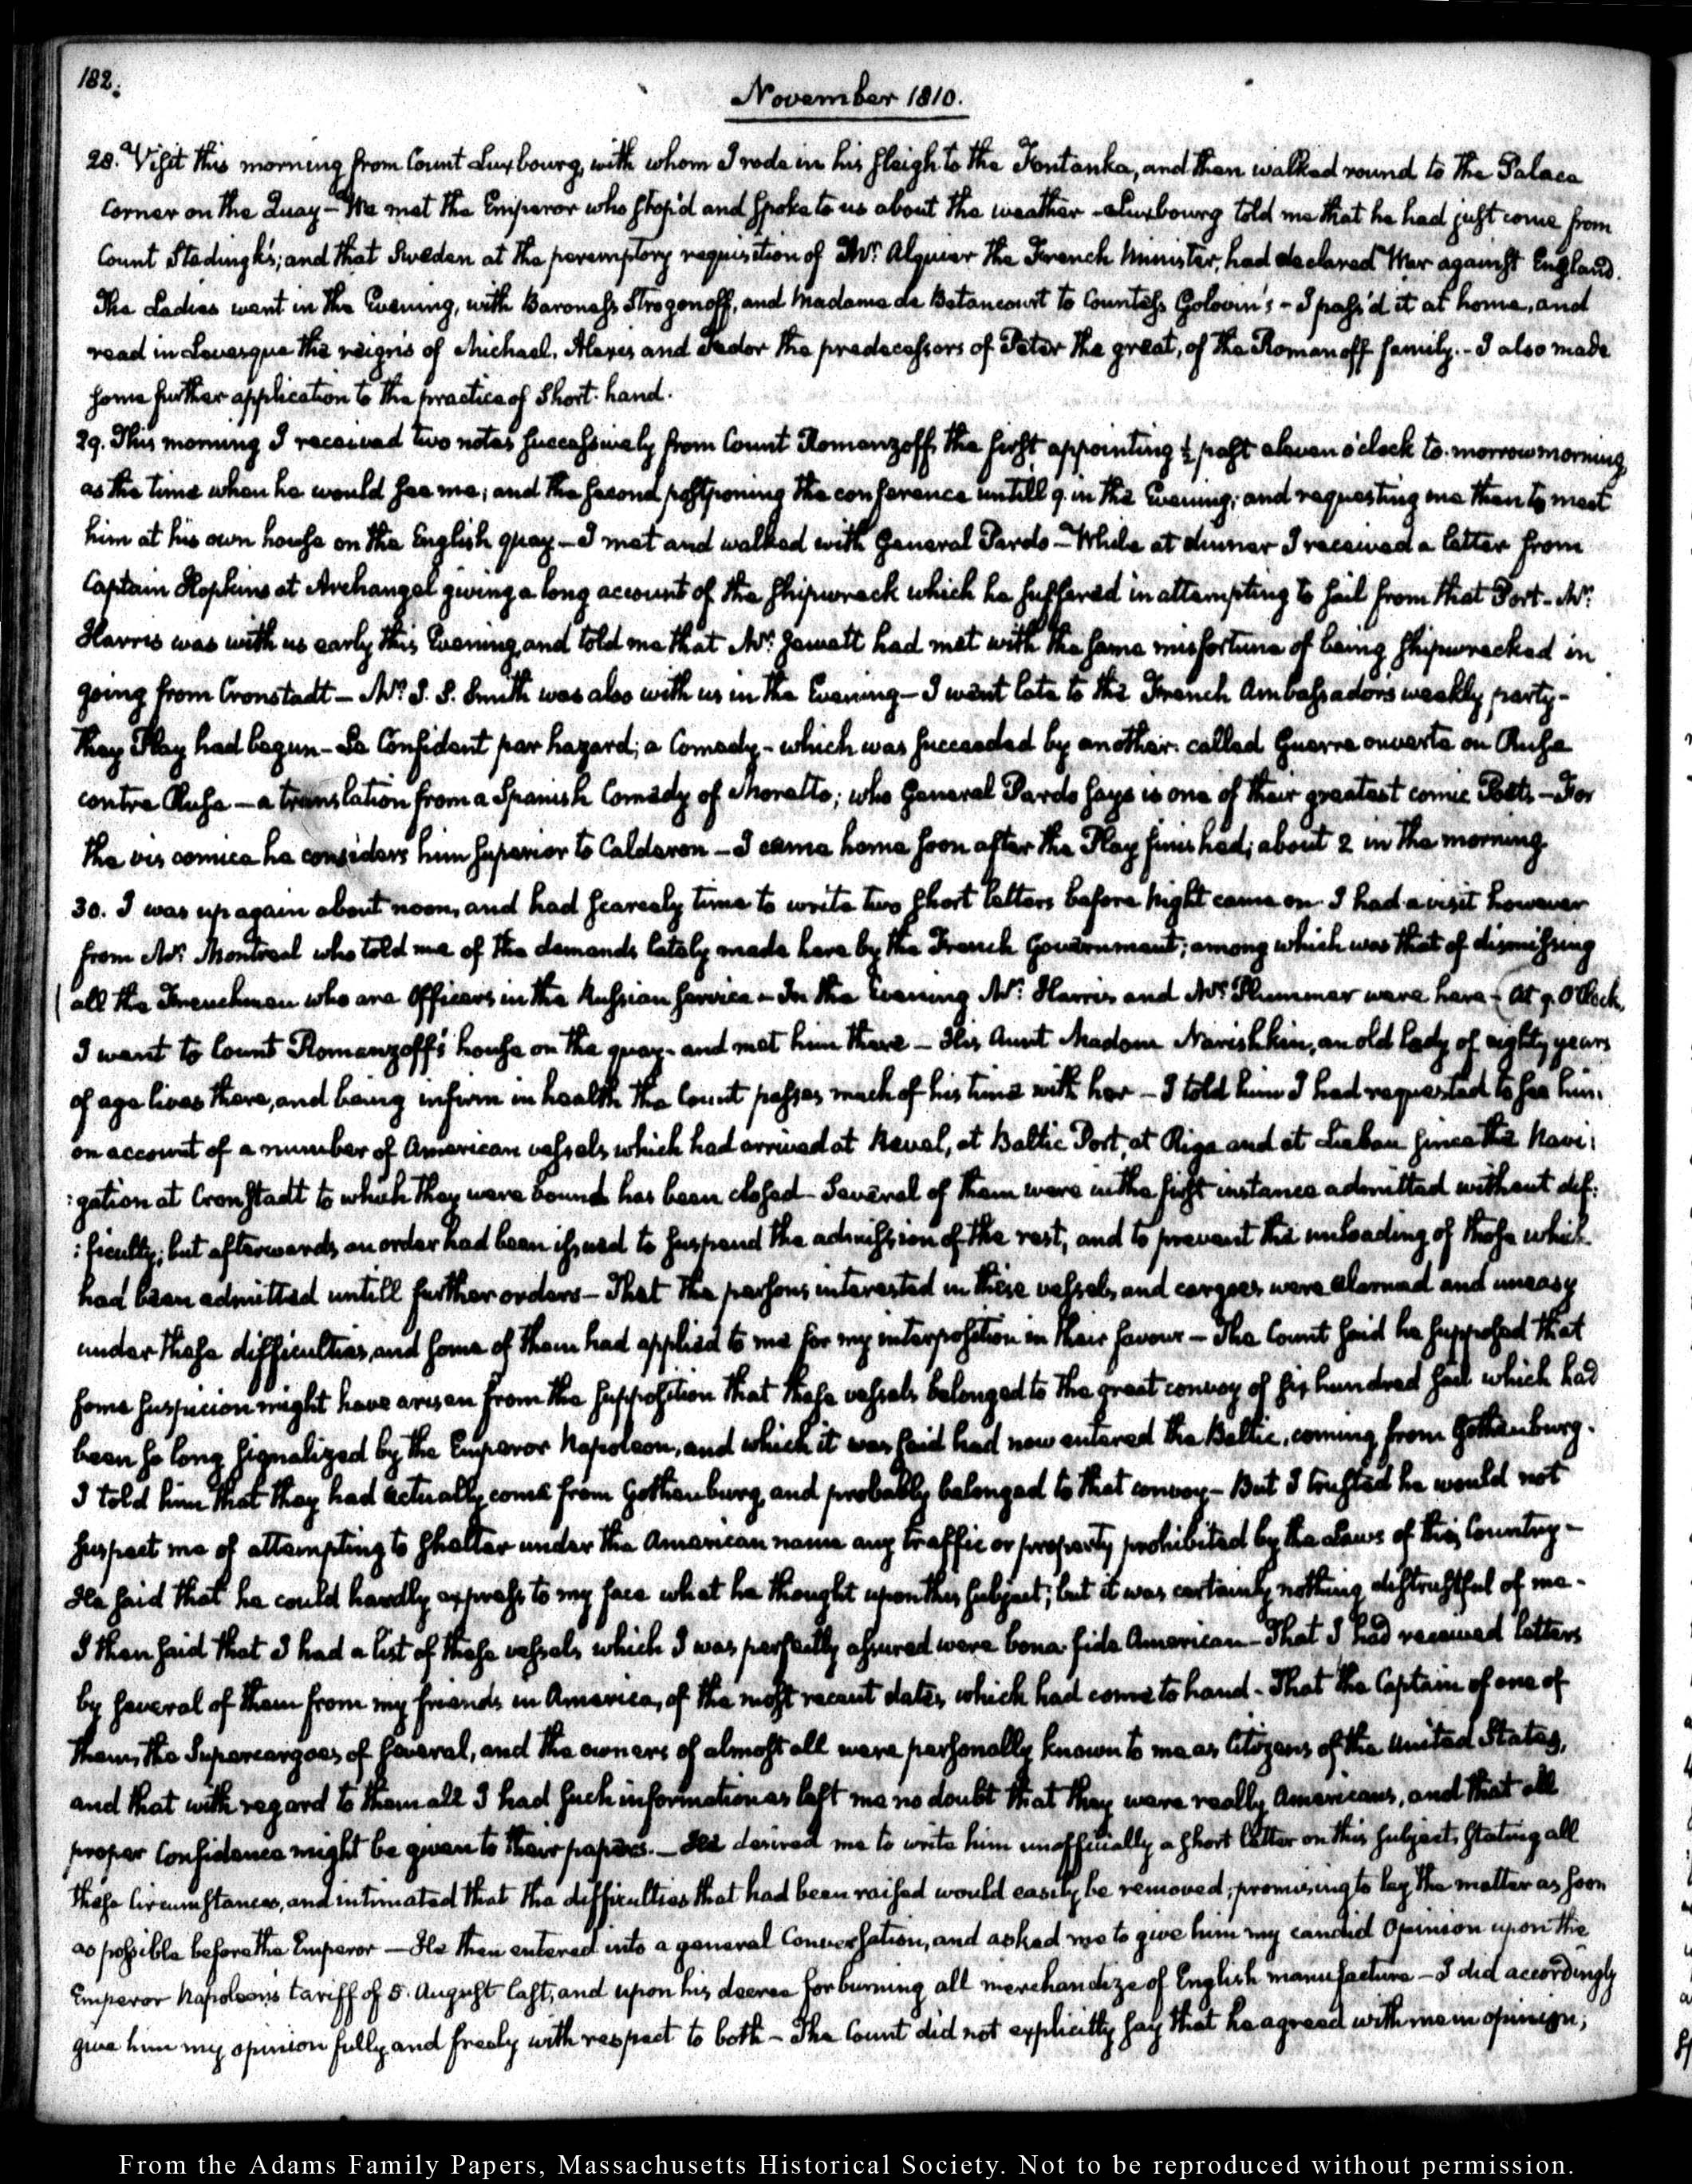 182.
November 1810.
28. Visit this morning from Count Luxbourg, with whom I rode in his sleigh to the Fontanka, and then walked round to the Palace
corner on the Quay — We met the Emperor who stop'd and spoke to us about the weather — Luxbourg told me that he had just come from
Count Stedingk's; and that Sweden at the peremptory requisition of Mr. Alquier the French Minister, had declared War against England.
The Ladies went in the Evening, with Baroness Strogonoff, and Madame de Betancourt to Countess Golovin's — I pass'd it at home, and
read in Levesque the reigns of Michael, Alexis and Fedor the predecessors of Peter the great, of the Romanoff family. — I also made
some further application to the practice of Short-hand.
29. This morning I received two notes successively from Count Romanzoff, the first appointing ½ past eleven o'clock to-morrow morning,
as the time when he would see me; and the second postponing the conference untill 9 in the Evening; and requesting me then to meet
him at his own house on the English quay — I met and walked with General Pardo — While at dinner I received a letter from
Captain Hopkins at Archangel giving a long account of the shipwreck which he suffered in attempting to sail from that Port — Mr.
Harris was with us early this Evening, and told me that Mr. Jewett had met with the same misfortune of being shipwrecked in
going from Cronstadt — Mr. J. S. Smith was also with us in the Evening — I went late to the French Ambassador's weekly party —
They Play had begun — Le Confident par hazard; a Comedy — which was succeeded by another called Guerre ouverte ou Ruse
contre Ruse — a translation from a Spanish Comedy of Moretto; who General Pardo says is one of their greatest comic Poets — For
the vis comica he considers him superior to Calderon — I came home soon after the Play finished; about 2 in the morning.
30. I was up again about noon, and had scarcely time to write two short letters before night came on. I had a visit however
from Mr. Montreal who told me of the demands lately made here by the French Government; among which was that of dismissing
all the Frenchmen who are Officers in the Russian service — In the Evening Mr. Harris and Mr. Plummer were here — (At 9. O'Clock,
I went to Count Romanzoff's house on the quay — and met him there — His Aunt Madam Narishkin, an old lady of eighty years
of age lives there, and being infirm in health the Count passes much of his time with her — I told him I had requested to see him
on account of a number of American vessels which had arrived at Reval, at Baltic Port, at Riga and at Liebau since the Navi:
:gation at Cronstadt to which they were bound has been closed — Several of them were in the first instance admitted without dif:
:ficulty; but afterwards an order had been issued to suspend the admission of the rest, and to prevent the unloading of those which
had been admitted untill further orders — That the persons interested in these vessels and cargoes were alarmed and uneasy
under these difficulties, and some of them had applied to me for my interposition in their favour — The Count said he supposed that
some suspicion might have arisen from the supposition that these vessels belonged to the great convoy of six hundred sail which had
been so long signalized by the Emperor Napoleon, and which it was said had now entered the Baltic, coming from Gothenburg.
I told him that they had actually come from Gothenburg, and probably belonged to that convoy — But I trusted he would not
suspect me of attempting to shelter under the American name any traffic or property prohibited by the Laws of this Country —
He said that he could hardly express to my face what he thought upon this subject; but it was certainly nothing distrustful of me —
I then said that I had a list of these vessels which I was perfectly assured were bona fide American — That I had received letters
by several of them from my friends in America, of the most recent dates, which had come to hand — That the Captain of one of
them, the Supercargoes of several, and the owners of almost all were personally known to me as Citizens of the United States,
and that with regard to them all I had such information as left me no doubt that they were really Americans, and that all
proper Confidence might be given to their papers. — He desired me to write him unofficially a short letter on this subject, stating all
these Circumstances, and intimated that the difficulties that had been raised would easily be removed; promising to lay the matter as soon
as possible before the Emperor — He then entered into a general Conversation, and asked me to give him my candid Opinion upon the
Emperor Napoleon's tariff of 5. August last, and upon his decree for burning all merchandize of English manufacture — I did accordingly
give him my opinion fully and freely with respect to both — The Count did not explicitly say that he agreed with me in opinion;
From the Adams Family Papers, Massachusetts Historical Society. Not to be reproduced without permission.